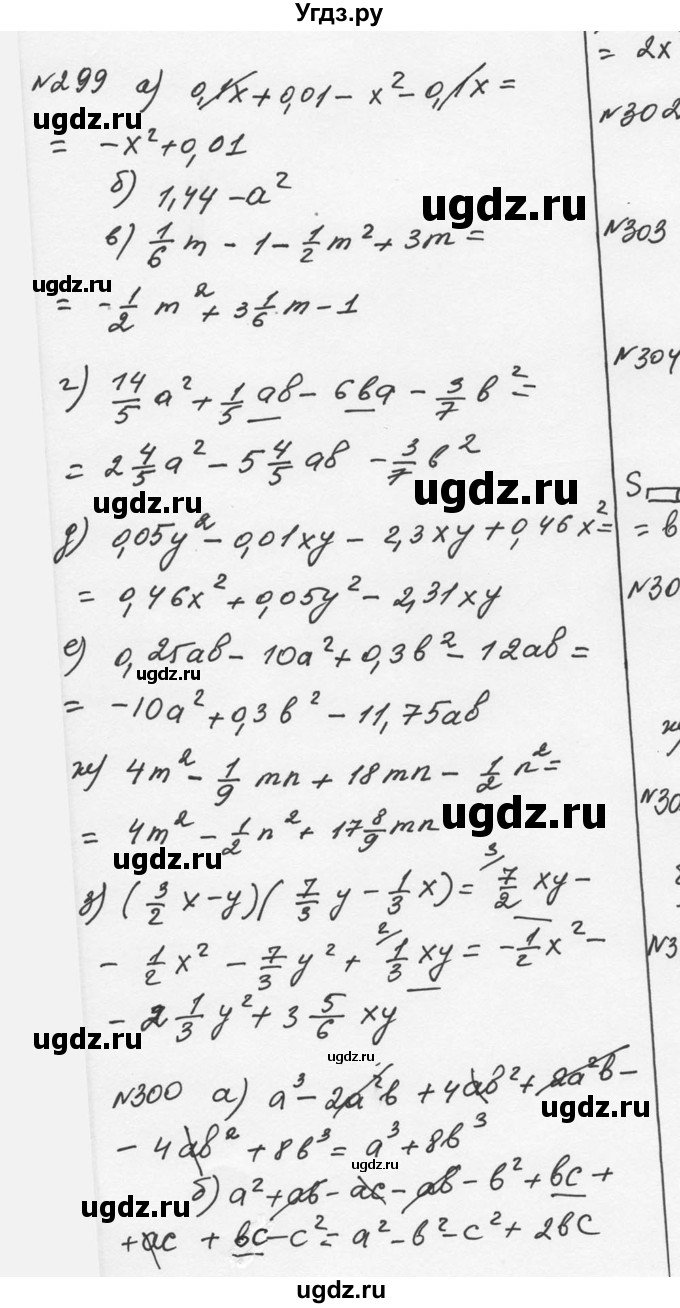 Угдз.ру
№299 а) 0,1x + 0,01 - x² - 0,1x =
= -x² + 0,01
б) 1,44 - a²
в) 1/6 m - 1 - 1/2 m² + 3m =
= -1/2 m² + 3 1/6 m - 1
г) 14/5 a² + 1/5 ab - 6ba - 3/7 b² =
= 2 4/5 a² - 5 4/5 ab - 3/7 b²
д) 0,05y² - 0,01xy - 2,3xy + 0,46x² =
= 0,46x² + 0,05y² - 2,31xy
е) 0,25ab - 10a² + 0,3b² - 12ab =
= -10a² + 0,3b² - 11,75ab
ж) 4m² - 1/9 mn + 18mn - 1/2 n² =
= 4m² - 1/2 n² + 17 8/9 mn
з) (3/2 x - y)(7/3 y - 1/3 x) = 7/2 xy -
- 1/2 x² - 7/3 y² + 1/3 xy = -1/2 x² -
- 2 1/3 y² + 3 5/6 xy
№300 а) a³ - 2a²b + 4ab² + 2a²b -
- 4ab² + 8b³ = a³ + 8b³
б) a² + ab - ac - ab - b² + bc +
+ ac + bc - c² = a² - b² - c² + 2bc
= 2x
№302
№303
№304
S
= b
№30
№30
№3
ugdz.ru
ugdz.ru
ugdz.ru
ugdz.ru
ugdz.ru
ugdz.ru
ugdz.ru
ugdz.ru
ugdz.ru
ugdz.ru
ugdz.ru
ugdz.ru
ugdz.ru
ugdz.ru